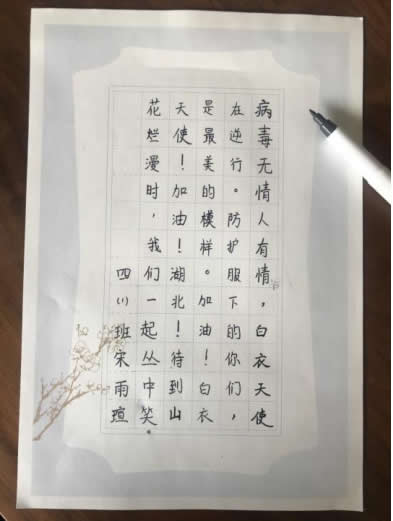 病毒无情人有情，白衣天使
在逆行。防护服下的你们，
是最美的模样。加油！白衣
天使！加油！湖北！待到山
花烂漫时，我们一起丛中笑
四（1）班宋雨瑄